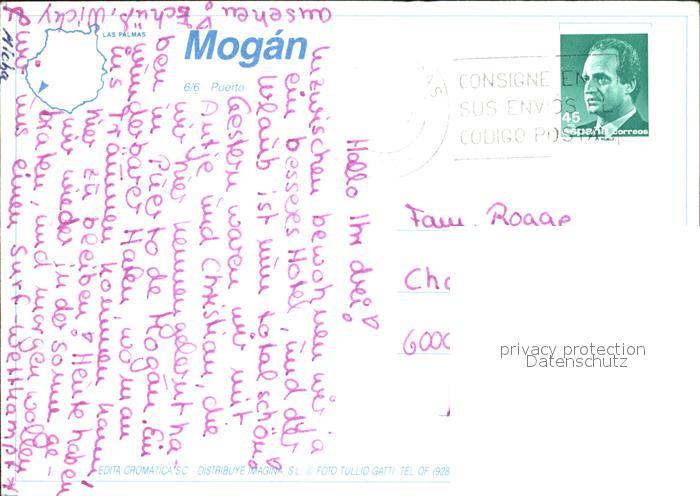 LAS PALMAS
Mogán
6/6 Puerto
CONSIGNE EN
SUS ENVIOS EL
CODIGO POSTAL
45
españa correos
Hallo Ihr drei!
Inzwischen bewohnen wir ja
ein besseres Hotel, und der
Urlaub ist nun total schön
Gestern waren wir mit
Antje und Christian, die
wir hier kennengelernt ha
ben in Puerto de Mogán. Ein
wunderbarer Hafen, wo man
ins träumen kommen kann
hier zu bleiben! Heute haben
wir wieder in der Sonne ge
braten, und morgen wollen
wir uns einen Surf-Wettkampf
ansehen!
Tschüß, Wicky
Micha
Fam. Roaap
6000
privacy protection
Datenschutz
EDITA CROMATICA S.C. - DISTRIBUYE IMAGINA, S.L. © FOTO TULLIO GATTI. TEL. OF (928